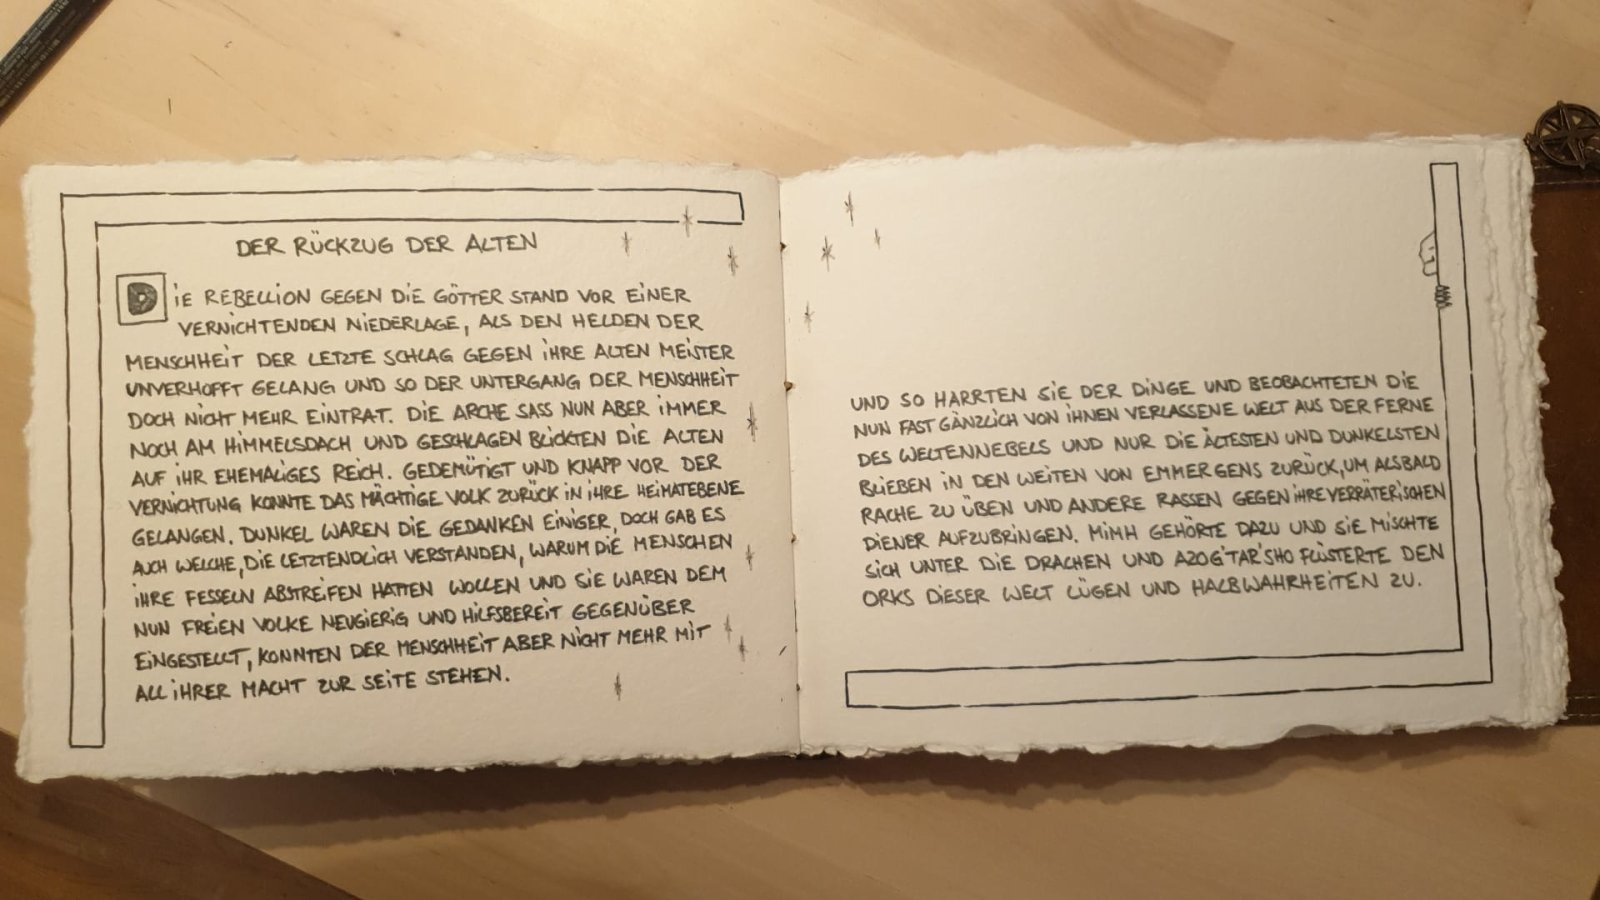 DER RÜCKZUG DER ALTEN
DIE REBELLION GEGEN DIE GÖTTER STAND VOR EINER
VERNICHTENDEN NIEDERLAGE, ALS DEN HELDEN DER
MENSCHHEIT DER LETZTE SCHLAG GEGEN IHRE ALTEN MEISTER
UNVERHOFFT GELANG UND SO DER UNTERGANG DER MENSCHHEIT
DOCH NICHT MEHR EINTRAT. DIE ARCHE SASS NUN ABER IMMER
NOCH AM HIMMELSDACH UND GESCHLAGEN BLICKTEN DIE ALTEN
AUF IHR EHEMALIGES REICH. GEDEMÜTIGT UND KNAPP VOR DER
VERNICHTUNG KONNTE DAS MÄCHTIGE VOLK ZURÜCK IN IHRE HEIMATEBENE
GELANGEN. DUNKEL WAREN DIE GEDANKEN EINIGER, DOCH GAB ES
AUCH WELCHE, DIE LETZTENDLICH VERSTANDEN, WARUM DIE MENSCHEN
IHRE FESSELN ABSTREIFEN HATTEN WOLLEN UND SIE WAREN DEM
NUN FREIEN VOLKE NEUGIERIG UND HILFSBEREIT GEGENÜBER
EINGESTELLT, KONNTEN DER MENSCHHEIT ABER NICHT MEHR MIT
ALL IHRER MACHT ZUR SEITE STEHEN.
UND SO HARRTEN SIE DER DINGE UND BEOBACHTETEN DIE
NUN FAST GÄNZLICH VON IHNEN VERLASSENE WELT AUS DER FERNE
DES WELTENNEBELS UND NUR DIE ÄLTESTEN UND DUNKELSTEN
BLIEBEN IN DEN WEITEN VON EMMERGENS ZURÜCK, UM ALSBALD
RACHE ZU ÜBEN UND ANDERE RASSEN GEGEN IHRE VERRÄTERISCHEN
DIENER AUFZUBRINGEN. MIMH GEHÖRTE DAZU UND SIE MISCHTE
SICH UNTER DIE DRACHEN UND AZOG'TAR'SHO FLÜSTERTE DEN
ORKS DIESER WELT LÜGEN UND HALBWAHRHEITEN ZU.